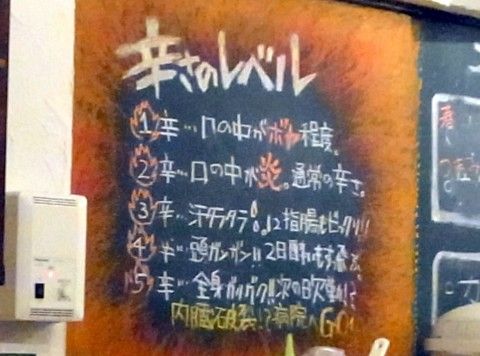 辛さのレベル
1辛…口の中がボヤ程度。
2辛…口の中が炎。通常の辛さ。
3辛…汗ダラダラ 12指腸もビックリ!!
4辛…頭ガンガン!! 2日酔いも
5辛…全身ガクガク!!次の日欠勤!?
内臓破裂!?病院へGO!